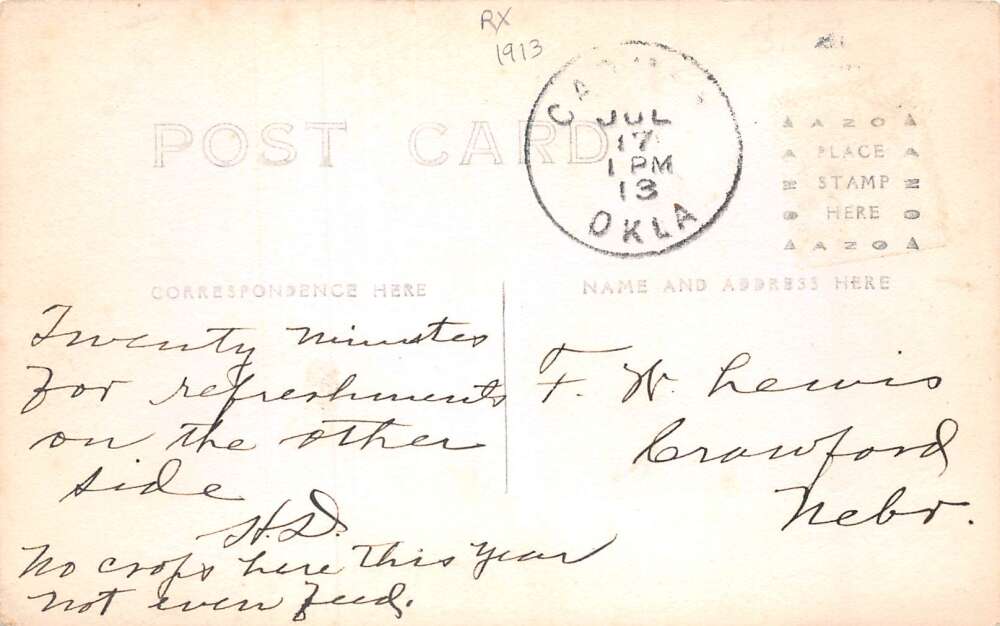 RX
1913
POST CARD
JUL
17
1 PM
13
OKLA
AZO
PLACE
STAMP
HERE
AZO
CORRESPONDENCE HERE
NAME AND ADDRESS HERE
Twenty minutes
for refreshments
on the other
side
H.D.
No crops here this year
not even feed.
F. W. Lewis
Crawford
Nebr.